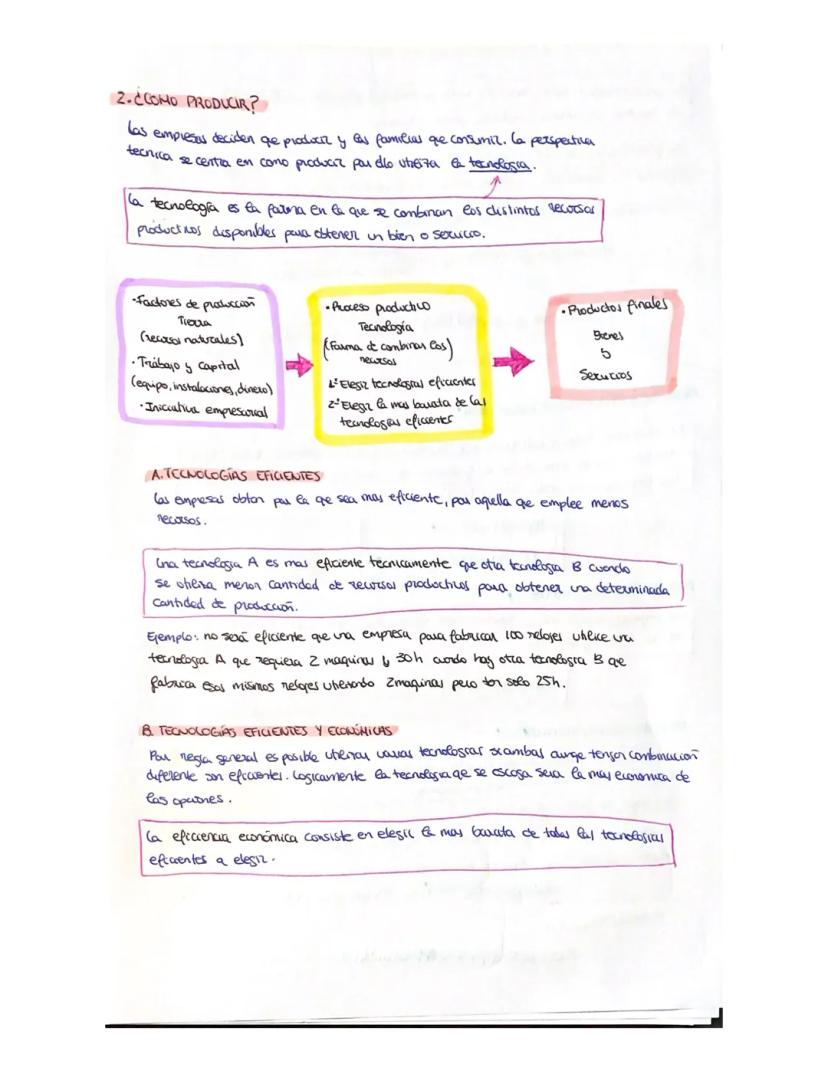 2. ¿COMO PRODUCIR?
Las empresas deciden que producir y las familias que consumir. La perspectiva
tecnica se centra em como producir par ello utiliza la tecnologia.
La tecnología es la forma en la que se combinan los distintos recursos
productivos disponibles para obtener un bien o servicio.
·Factores de producción
Tierra
(recursos naturales)
· Trabajo y capital
(equipo, instalaciones, dinero)
· Iniciativa empresarial
· Proceso productivo
Tecnología
(Forma de combinar los)
recursos
1º Elegir tecnologias eficientes
2º Elegir la mas barata de las
tecnologias eficientes
· Productos finales
Bienes
y
Servicios
A. TECNOLOGÍAS EFICIENTES
Las empresas obtan por la que sea mas eficiente, por aqella que emplee menos
recursos.
Una tecnologia A es mas eficiente tecnicamente que otra tecnologia B cuando
se utiliza menor cantidad de recursos productivos para obtener una determinada
cantidad de producción.
Ejemplo: no será eficiente que una empresa para fabricar 100 relojes utilice una
tecnologia A que requiera 2 maquinas y 30h cuando hay otra tecnologia B que
fabrica esos mismos relojes utilizando 2 maquinas pero tan solo 25h.
B. TECNOLOGÍAS EFICIENTES Y ECONÓMICAS
Por regla general es posible utilizar varias tecnologias si ambas aunqe tengan combinación
diferente son eficientes. Logicamente la tecnologia qe se escoja sera la mas economica de
las opciones.
La eficiencia económica consiste en elegir la mas barata de todas las tecnologias
eficientes a elegir.